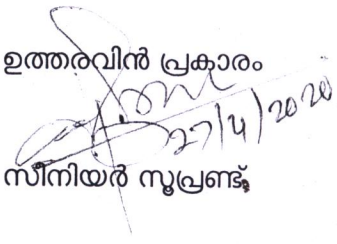 ഉത്തരവിൻ പ്രകാരം
27/4/2020
സീനിയർ സൂപ്രണ്ട്.